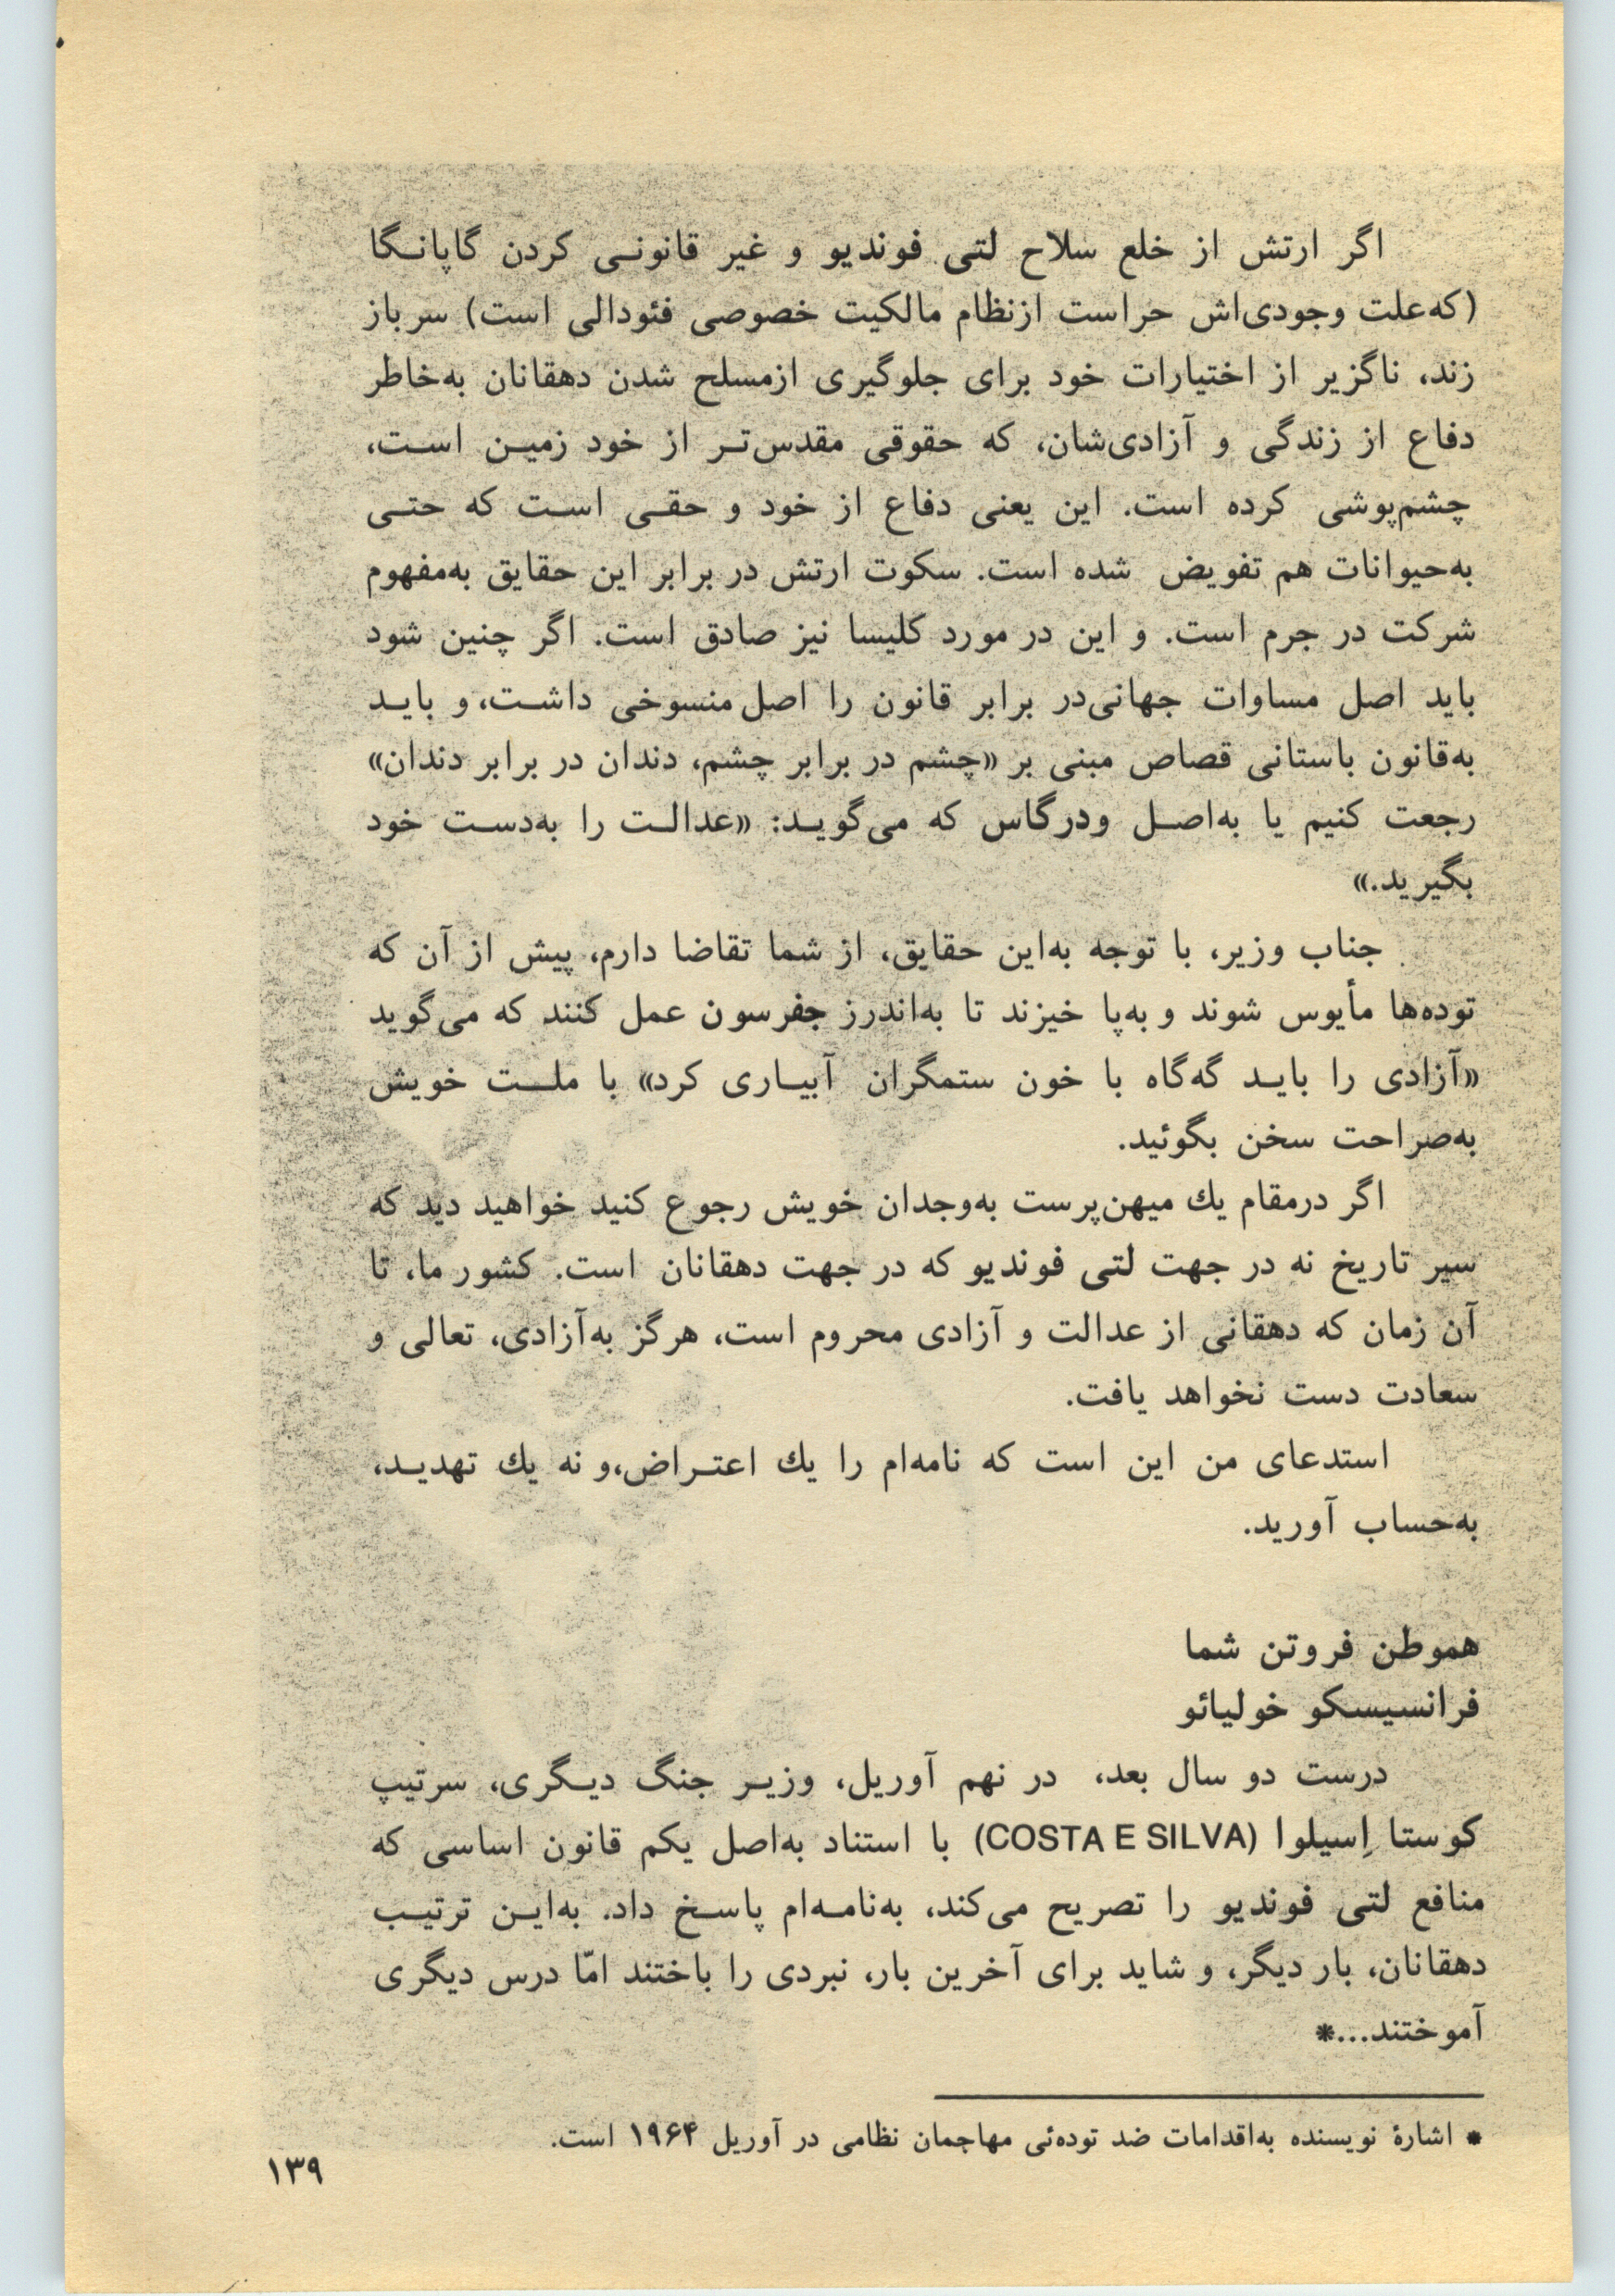 اگر ارتش از خلع سلاح لتی فوندیو و غیر قانونی کردن گاپانگا
(که‌علت وجودی‌اش حراست ازنظام مالکیت خصوصی فئودالی است) سر باز
زند، ناگزیر از اختیارات خود برای جلوگیری ازمسلح شدن دهقانان به‌خاطر
دفاع از زندگی و آزادی‌شان، که حقوقی مقدس‌تر از خود زمین است،
چشم‌پوشی کرده است. این یعنی دفاع از خود و حقی است که حتی
به‌حیوانات هم تفویض شده است. سکوت ارتش در برابر این حقایق به‌مفهوم
شرکت در جرم است. و این در مورد کلیسا نیز صادق است. اگر چنین شود
باید اصل مساوات جهانی‌در برابر قانون را اصل منسوخی داشت، و باید
به‌قانون باستانی قصاص مبنی بر «چشم در برابر چشم، دندان در برابر دندان»
رجعت کنیم یا به‌اصل ودرگاس که می‌گوید: «عدالت را به‌دست خود
بگیرید.»
جناب وزیر، با توجه به‌این حقایق، از شما تقاضا دارم، پیش از آن که
توده‌ها مأیوس شوند و به‌پا خیزند تا به‌اندرز جفرسون عمل کنند که می‌گوید
«آزادی را باید گه‌گاه با خون ستمگران آبیاری کرد» با ملت خویش
به‌صراحت سخن بگوئید.
اگر درمقام یك میهن‌پرست به‌وجدان خویش رجوع کنید خواهید دید که
سیر تاریخ نه در جهت لتی فوندیو که در جهت دهقانان است. کشور ما، تا
آن زمان که دهقانی از عدالت و آزادی محروم است، هرگز به‌آزادی، تعالی و
سعادت دست نخواهد یافت.
استدعای من این است که نامه‌ام را یك اعتراض،و نه یك تهدید،
به‌حساب آورید.
هموطن فروتن شما
فرانسیسکو خولیائو
درست دو سال بعد، در نهم آوریل، وزیر جنگ دیگری، سرتیپ
کوستا اِسیلوا (COSTA E SILVA) با استناد به‌اصل یکم قانون اساسی که
منافع لتی فوندیو را تصریح می‌کند، به‌نامه‌ام پاسخ داد. به‌این ترتیب
دهقانان، بار دیگر، و شاید برای آخرین بار، نبردی را باختند امّا درس دیگری
آموختند...*
* اشارهٔ نویسنده به‌اقدامات ضد توده‌ئی مهاجمان نظامی در آوریل ۱۹۶۴ است.
۱۳۹